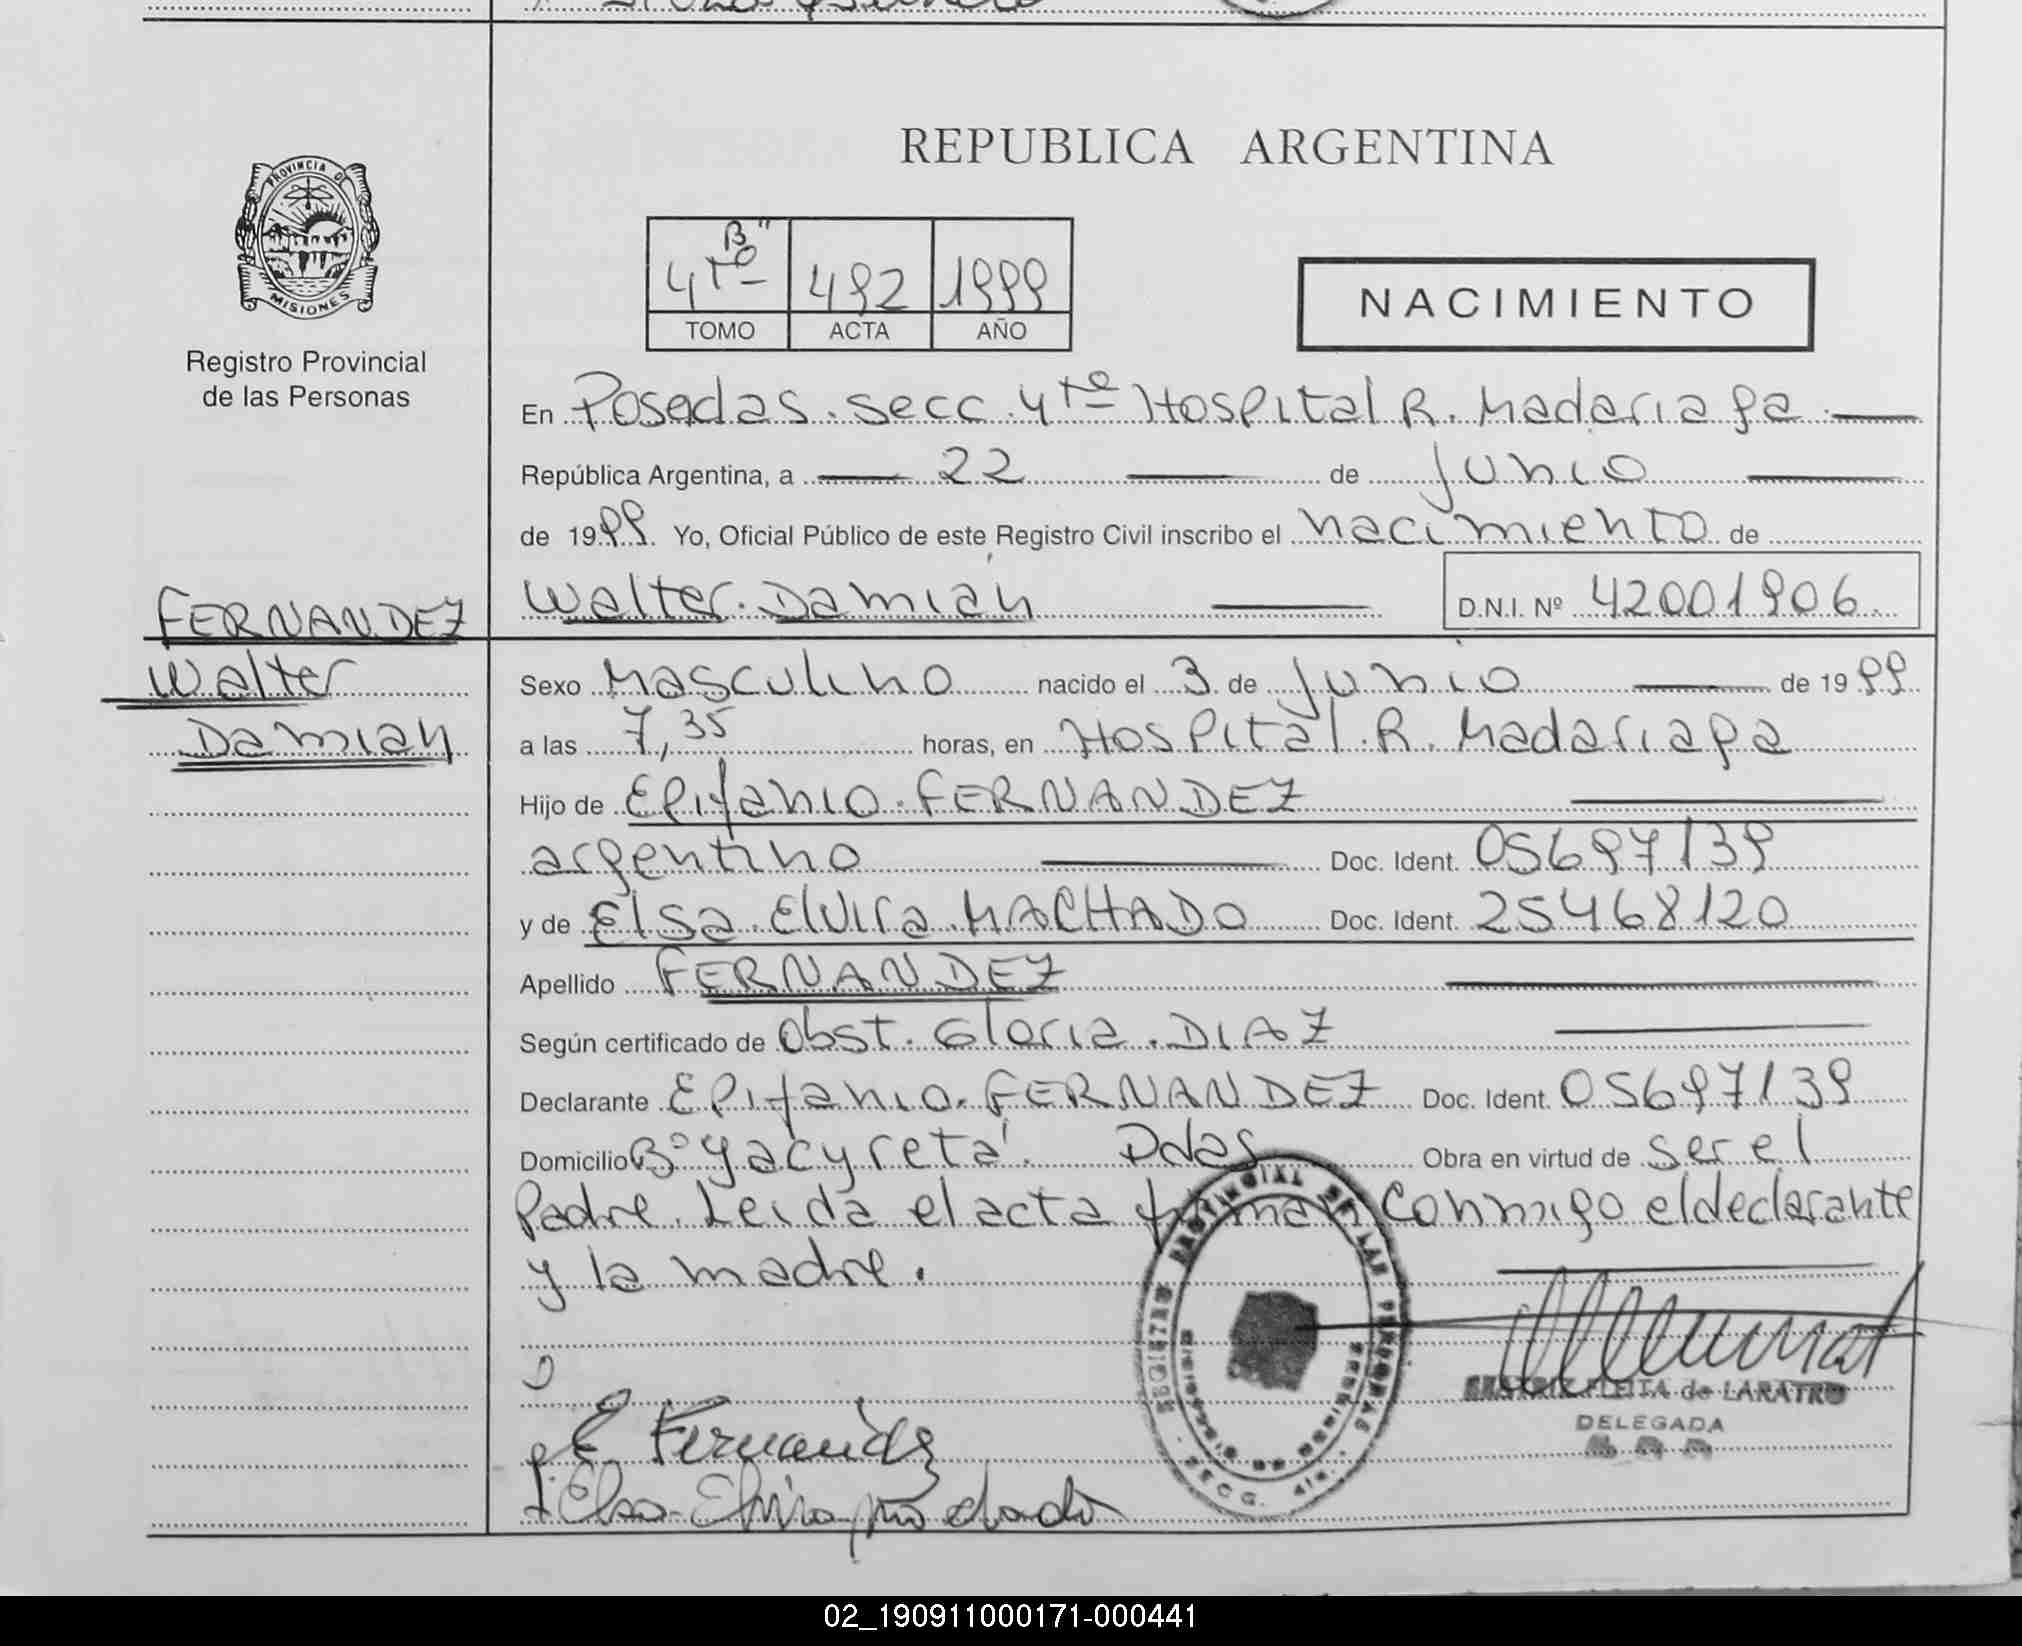 REPUBLICA ARGENTINA
PROVINCIA DE
MISIONES
Registro Provincial
de las Personas
4to "B" 492 1999
TOMO ACTA AÑO
NACIMIENTO
En Posadas. secc. 4ta Hospital R. Madariaga
República Argentina, a 22 de junio
de 1999. Yo, Oficial Público de este Registro Civil inscribo el nacimiento de
Walter Damián D.N.I. Nº 42001906
FERNANDEZ
Walter
Damian
Sexo Masculino nacido el 3 de junio de 1999
a las 7,35 horas, en Hospital R. Madariaga
Hijo de Epifanio FERNANDEZ
argentino Doc. Ident. 05697139
y de Elsa Elvira MACHADO Doc. Ident. 25468120
Apellido FERNANDEZ
Según certificado de Obst. Gloria DIAZ
Declarante Epifanio FERNANDEZ Doc. Ident. 05697139
Domicilio Bº Yacyretá. Pdas Obra en virtud de ser el
Padre. Leida el acta firman conmigo el declarante
y la madre.
REGISTRO PROVINCIAL DE LAS PERSONAS
SECC. 4ta.
E Fernandez
Elsa Elvira Machado
BEATRIZ FLEITA de LARATRO
DELEGADA
02_190911000171-000441